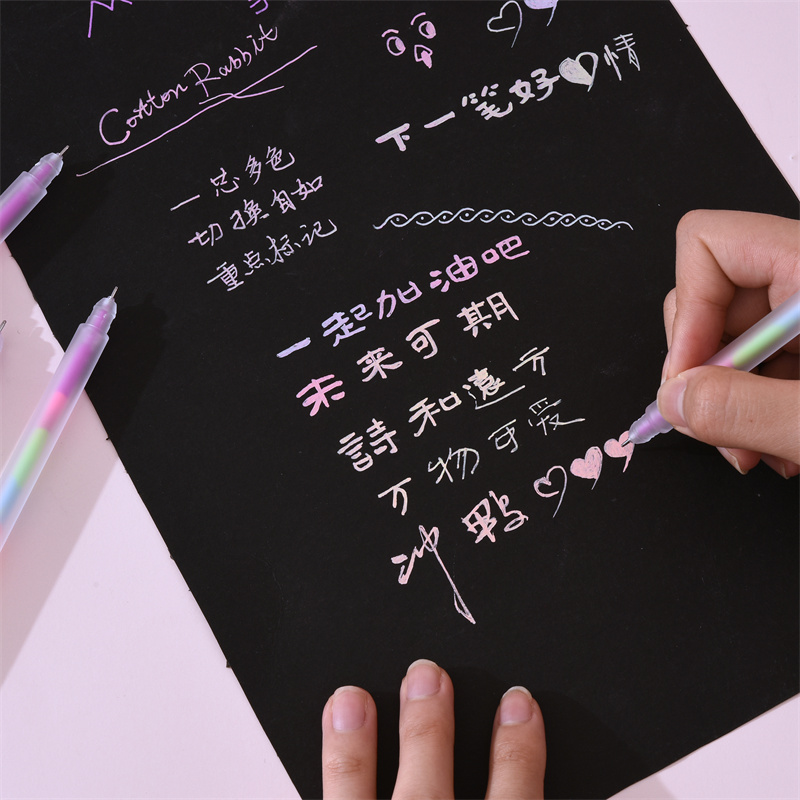 Cotton Rabbit
下一笔好♡情
一芯多色
切换自如
重点标记
一起加油吧
未来可期
詩和遠方
万物可爱
冲鸭